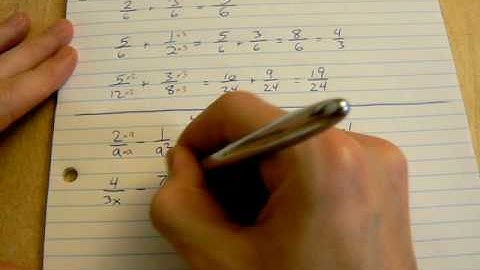 2/6 + 3/6 = 5/6
5/6 + 1·3/2·3 = 5/6 + 3/6 = 8/6 = 4/3
5·2/12·2 + 3·3/8·3 = 10/24 + 9/24 = 19/24
2·a/a·a - 1/a²
4/3x - 7